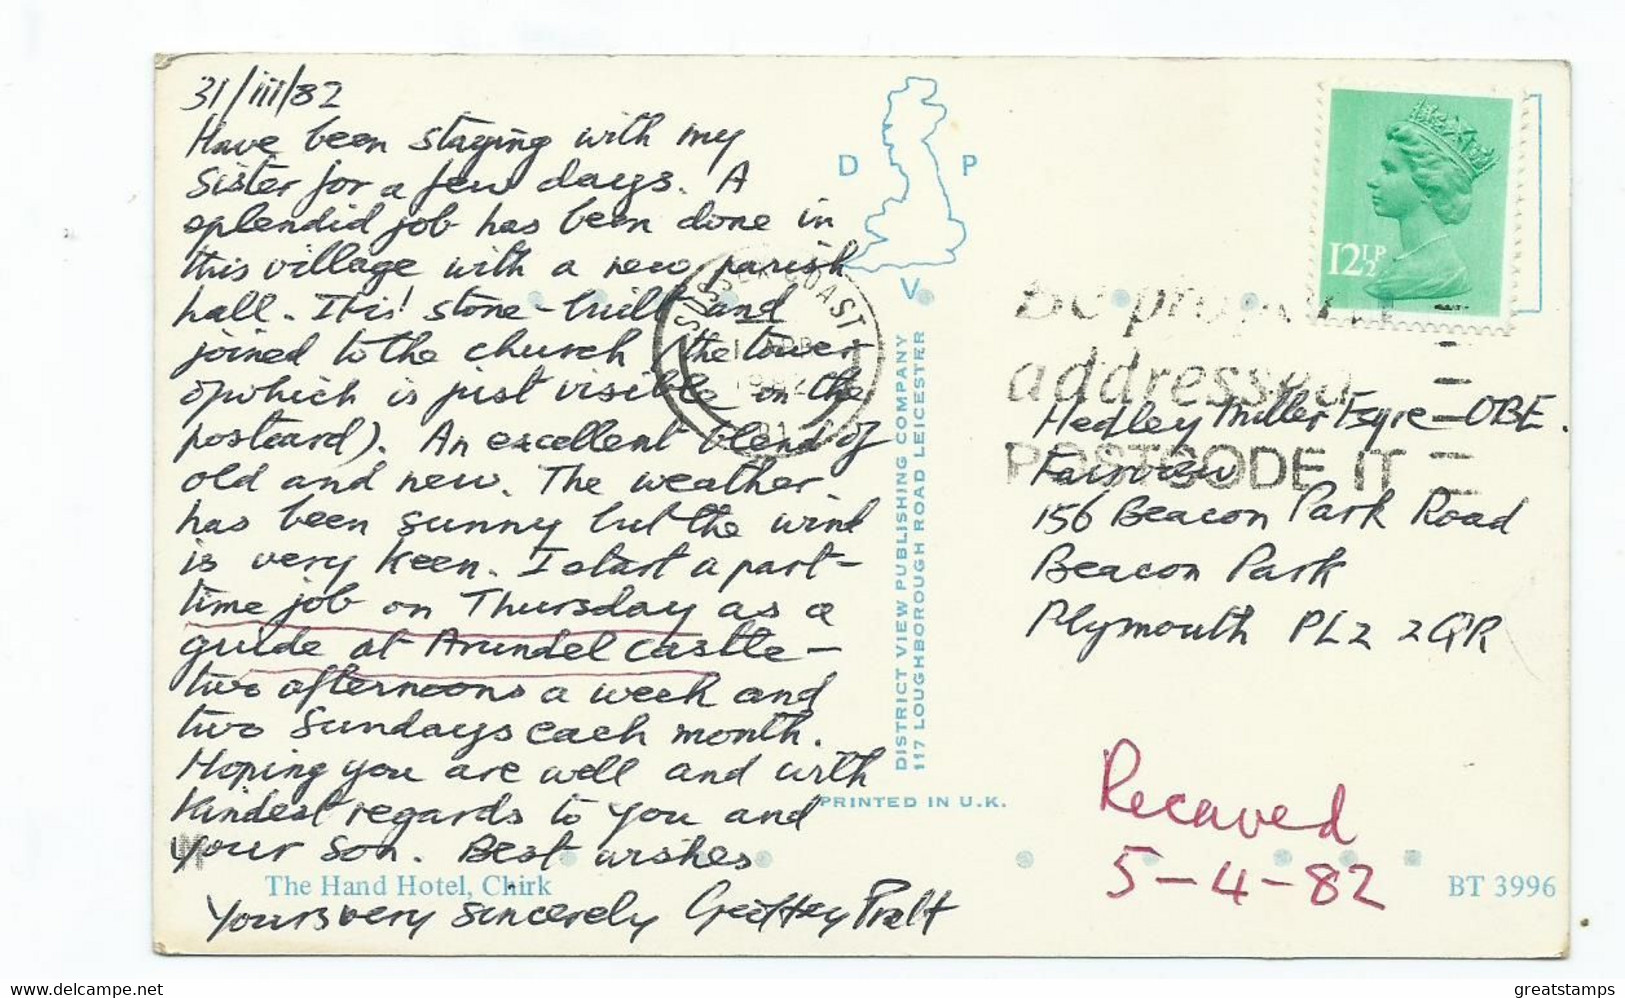 31/iii/82
Have been staying with my
sister for a few days. A
splendid job has been done in
this village with a new parish
hall. It is! stone-built and
joined to the church (the tower
of which is just visible on the
postcard). An excellent blend of
old and new. The weather
has been sunny but the wind
is very keen. I start a part-
time job on Thursday as a
guide at Arundel Castle -
two afternoons a week and
two Sundays each month.
Hoping you are well and with
kindest regards to you and
your son. Best wishes
Yours very sincerely Geoffrey Pratt
The Hand Hotel, Chirk
D P
V
DISTRICT VIEW PUBLISHING COMPANY
117 LOUGHBOROUGH ROAD LEICESTER
PRINTED IN U.K.
SUSSEX COAST
1 APR
1982
12½P
Be properly
addressed
POSTCODE IT
Hedley Miller Esqre - OBE.
Fairview
156 Beacon Park Road
Beacon Park
Plymouth PL2 2QR
Received
5-4-82
BT 3996
www.delcampe.net
greatstamps